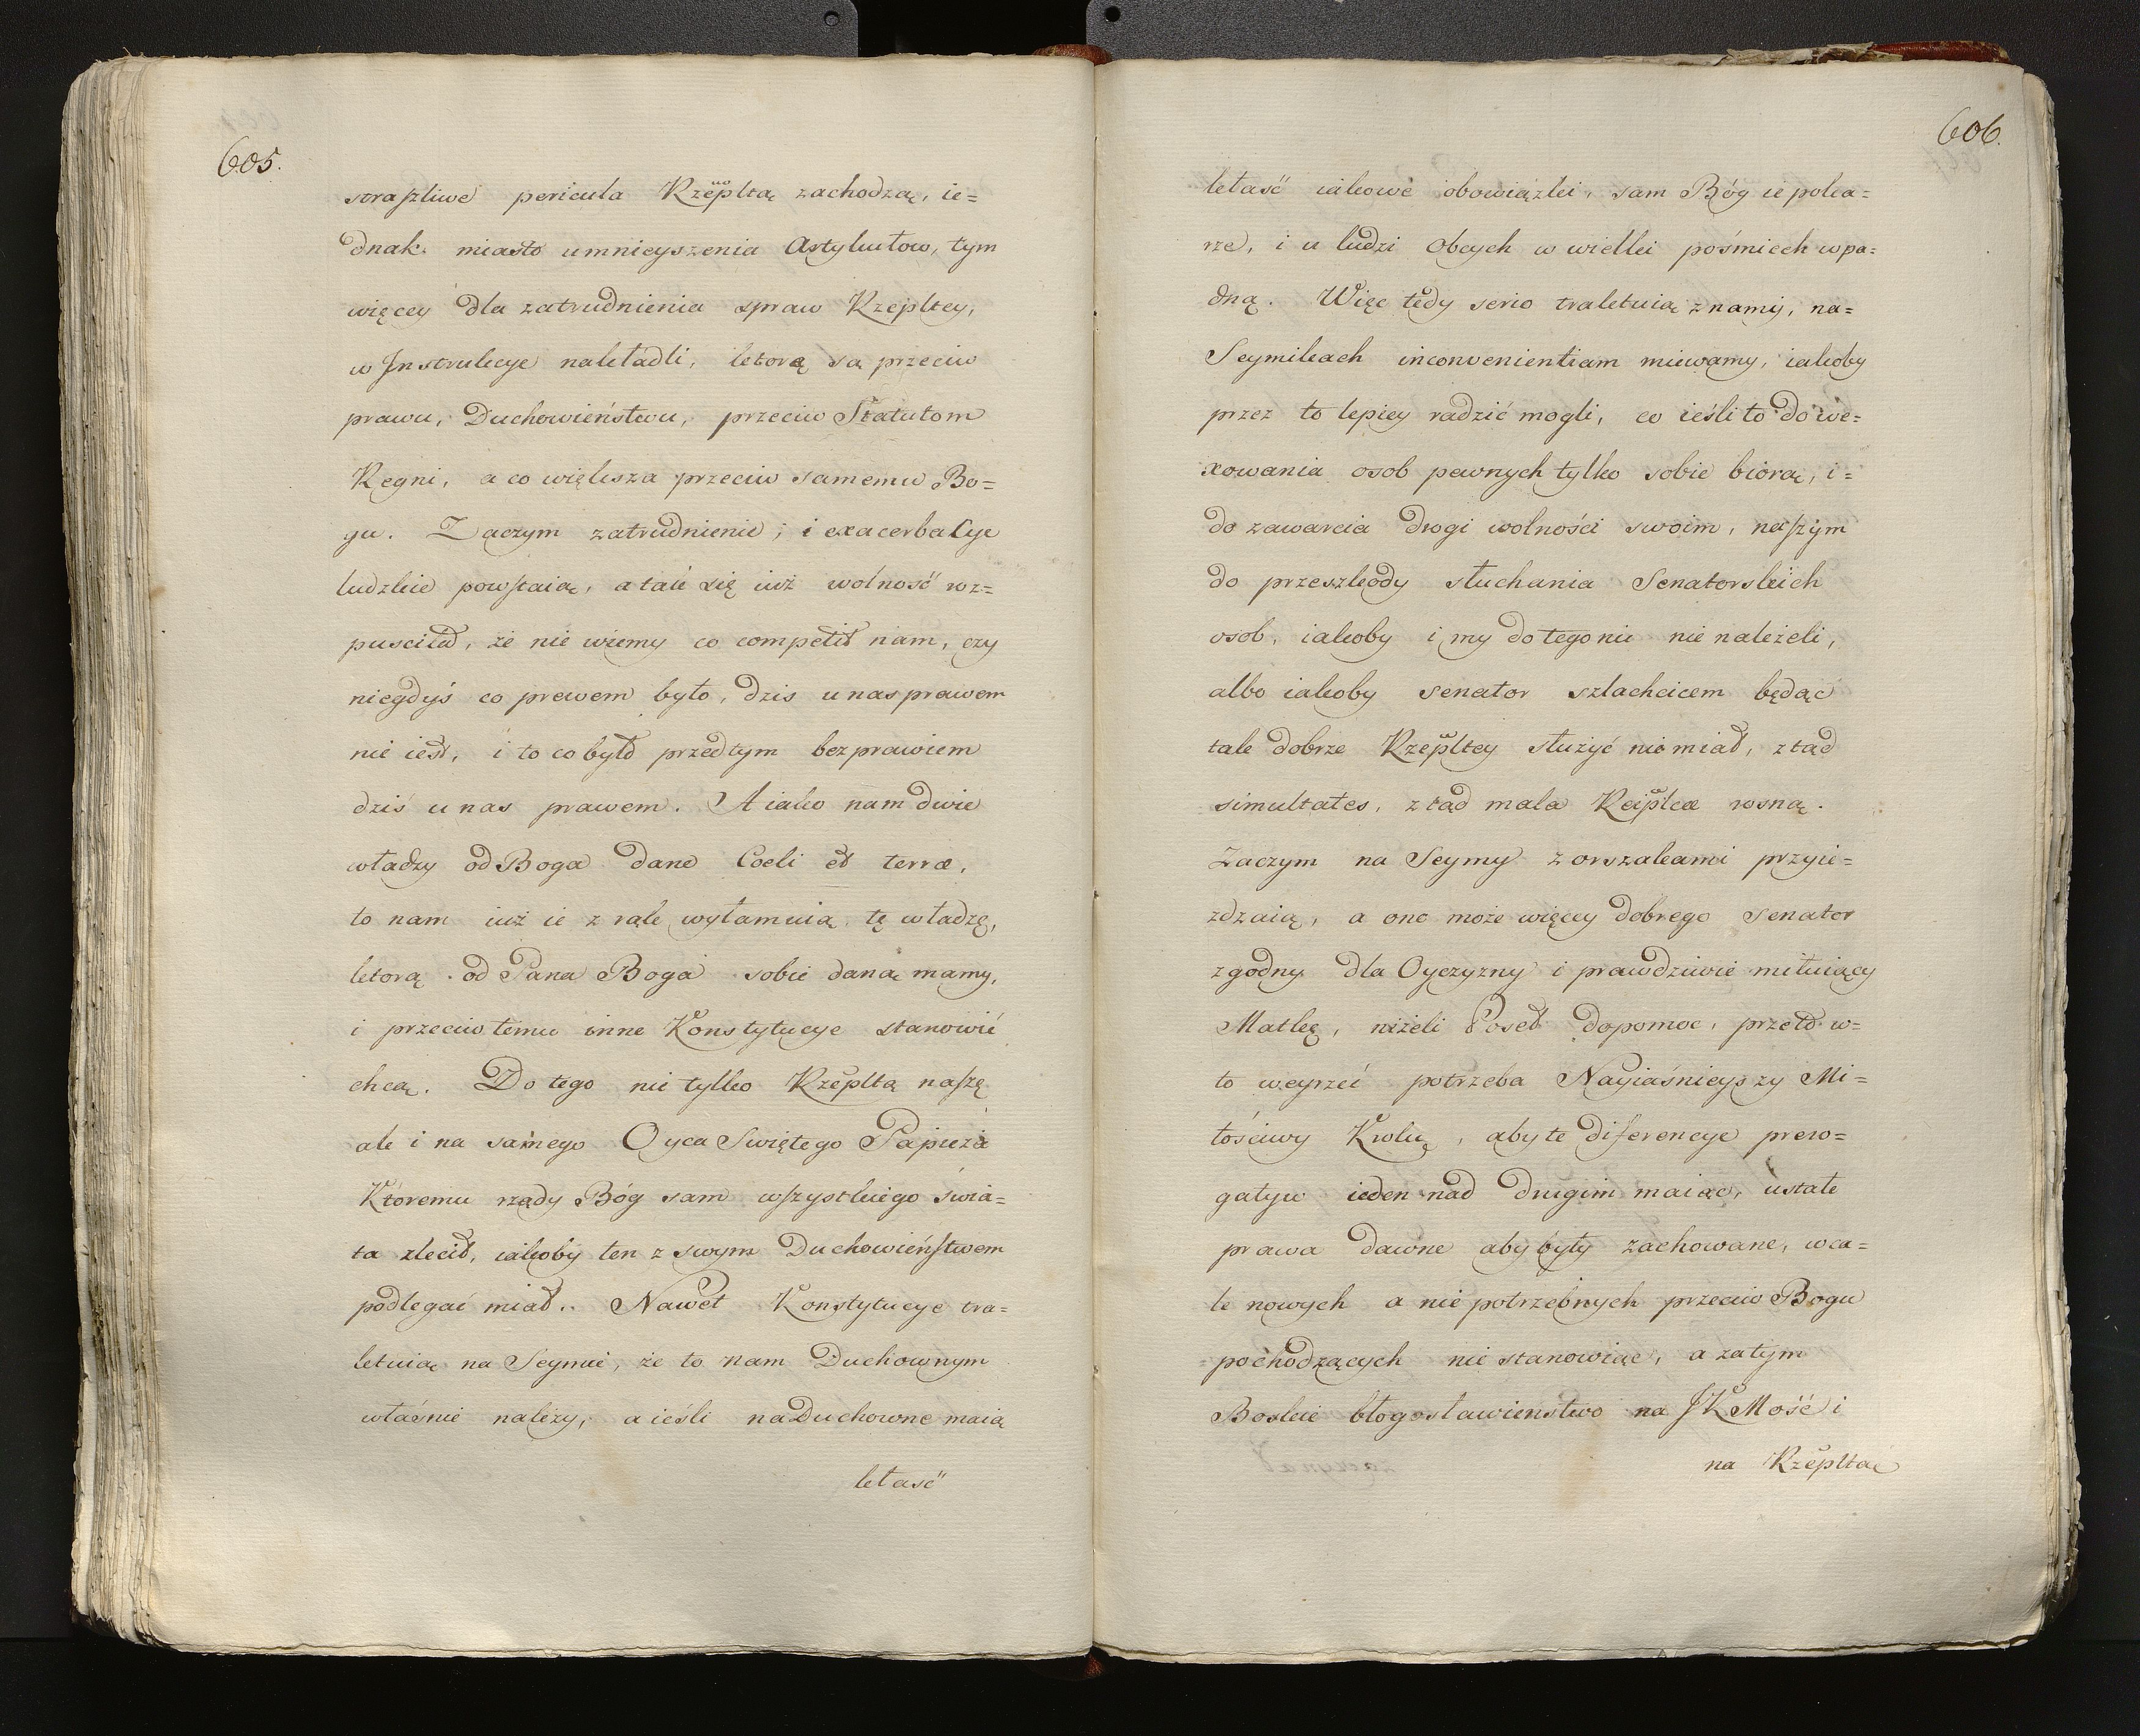 605.
straszliwe pericula Rzěpltą zachodzą, ie=
dnak miasto umnieyszenia Artykułow, tym
więcey dla zatrudnienia spraw Rzepltey,
w Instrukcye nakładli, którą są przeciw
prawu, Duchowieństwu, przeciw Statutom
Regni, a co większa przeciw samemu Bo=
gu. Zaczym zatrudnienie, i exacerbacye
ludzkie powstaią, a tak się iuż wolność roz=
puściła, że nie wiemy co competit nam, czy
niegdyś co prawem było, dzis u nas prawem
nie iest, i to co było przedtym bezprawiem
dziś u nas prawem. A iako nam dwie
władzy od Boga dane Coeli et terræ,
to nam iuż ie z rąk wyłamuią, tę władzę,
ktorą od Pana Boga sobie daną mamy,
i przeciw temu inne Konstytucye stanowić
chcą. Do tego nie tylko Rzěpltą naszę
ale i na samego Oyca Swiętego Papieża
Ktoremu rządy Bóg sam wszystkiego świa=
ta zlecił, iakoby ten z swym Duchowieństwem
podlegać miał. Nawet Konstytucye tra=
ktuią na Seymie, że to nam Duchownym
własnie należy, a ieśli na Duchowne maią
kłasć
606.
kłasć iakowe obowiązki, sam Bóg ie poka=
rze, i u ludzi obcych w wielki pośmiech wpa=
dną. Więc tedy serio traktuią z nami, na=
Seymikach inconvenientiam miewamy, iakoby
przez to lepiey radzić mogli, co ieśli to do we=
xowania osob pewnych tylko sobie biorą, i=
do zawarcia drogi wolności swoim, naszym
do przeszkody słuchania Senatorskich
osob, iakoby i my do tego nic nie należeli,
albo iakoby Senator szlachcicem będąc
tak dobrze Rzěpltey służyć nie miał, ztąd
simultates, ztąd mala Reiplcæ rosną.
Zaczym na Seymy z orszakami przyie=
zdzaią, a ono może więcey dobrego Senator
zgodny dla Oyczyzny i prawdziwie miłuiący
Matkę, niżeli Poseł dopomoc, przeto w=
to weyrzeć potrzeba Nayiaśnieyszy Mi=
łościwy Krolu, aby te diferencye prero=
gatyw ieden nad drugim maiąc, ustałe
prawa dawne aby były zachowane, wca=
le nowych a nie potrzebnych przeciw Bogu
pochodzących nie stanowiąc, a zatym
Boskie błogosławienstwo na JK Mość i
na Rzěpltą